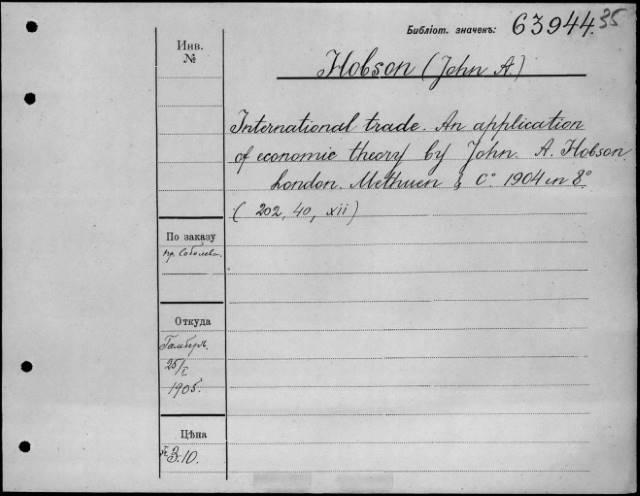 Библіот. значекъ: 63944.35
Инв.
№
Hobson (John A.)
International trade. An application
of economic theory by John. A. Hobson.
London. Methuen & Cº 1904 in 8º
(202, 40, xii)
По заказу
пр. Соболева.
Откуда
25/I
1905.
Цѣна
3.10.